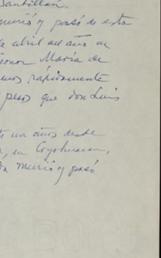 Santillan.
murió y pasó de esta
abril del año de
Leonor María de
rápidamente
pesos que don Luis
un años desde
en Coyohuacan,
murió y pasó